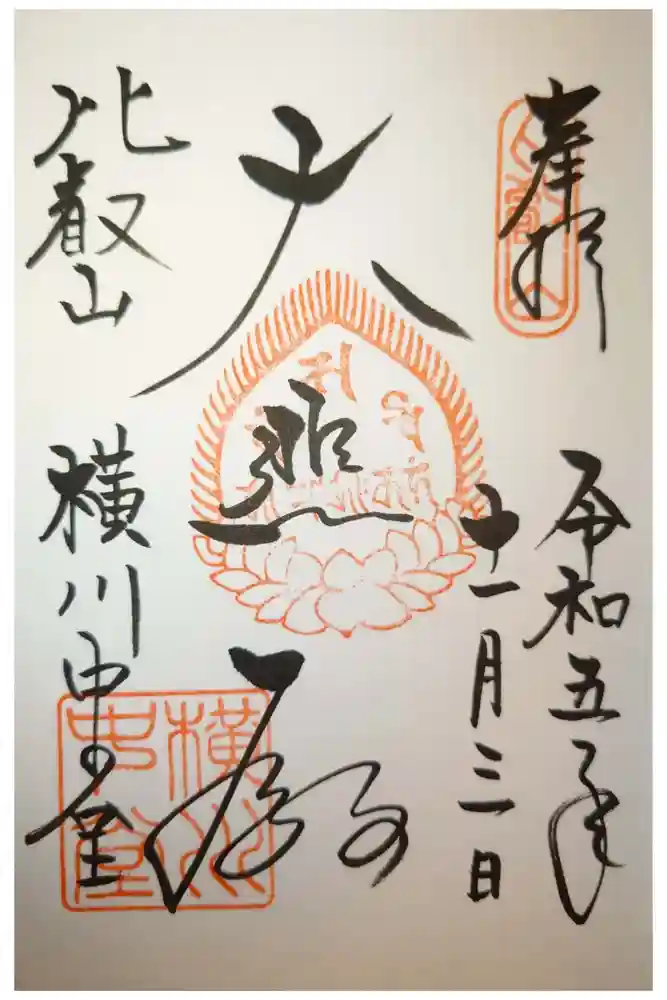 奉拝
令和五年
十一月三日
大悲殿
比叡山
横川中堂
横川中堂